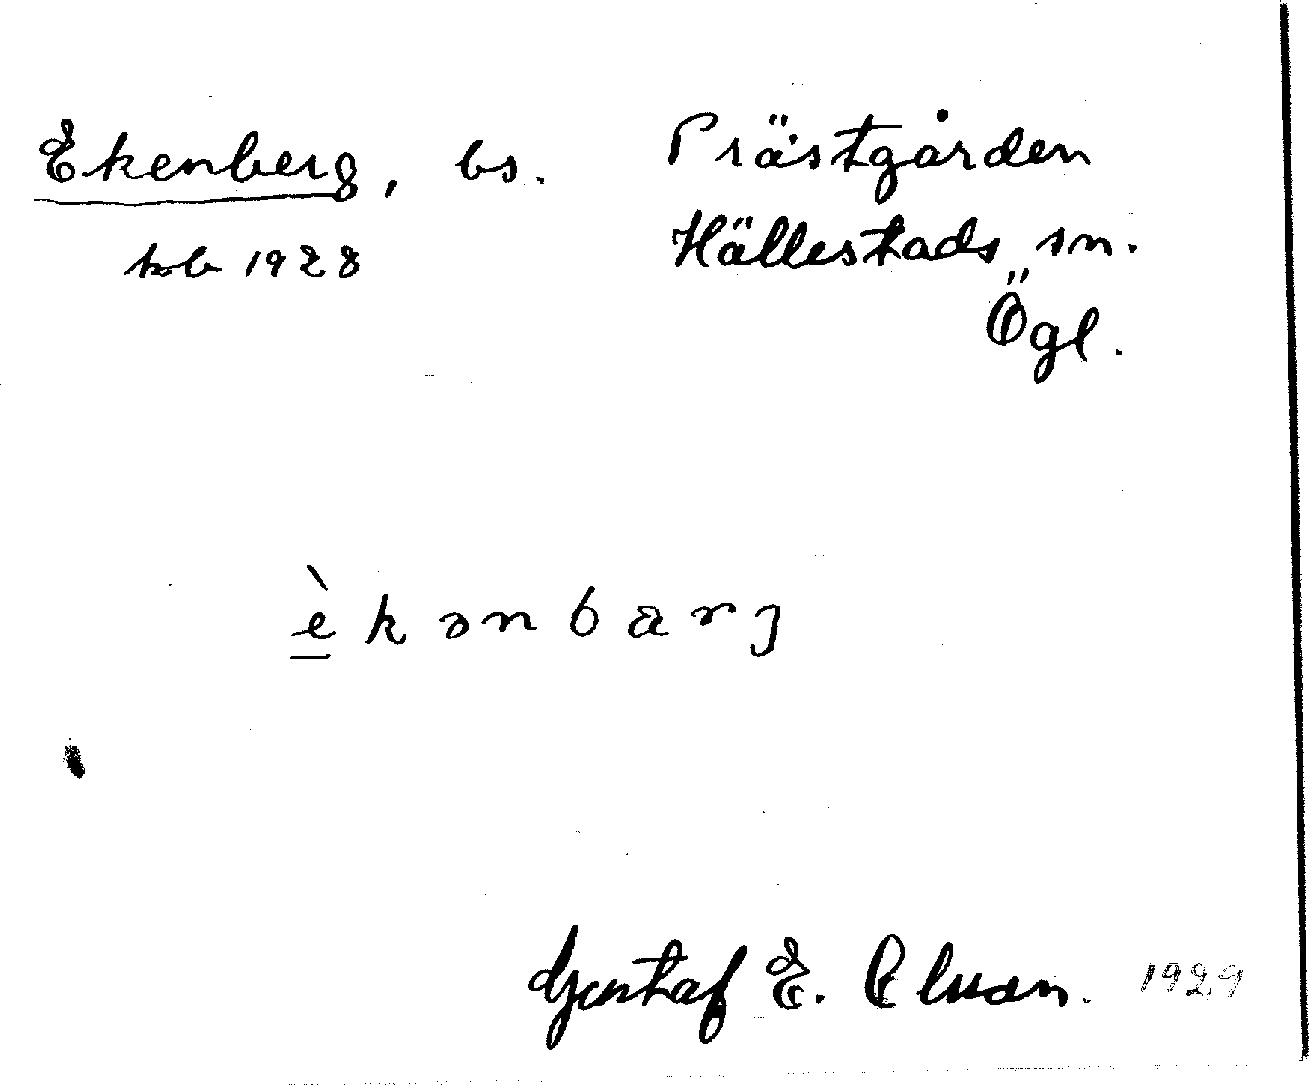 Ekenberg, bs. Prästgården
kb 1928 Hällestads sn.
Ögl.
èkənbarj
Gustaf E. 1929